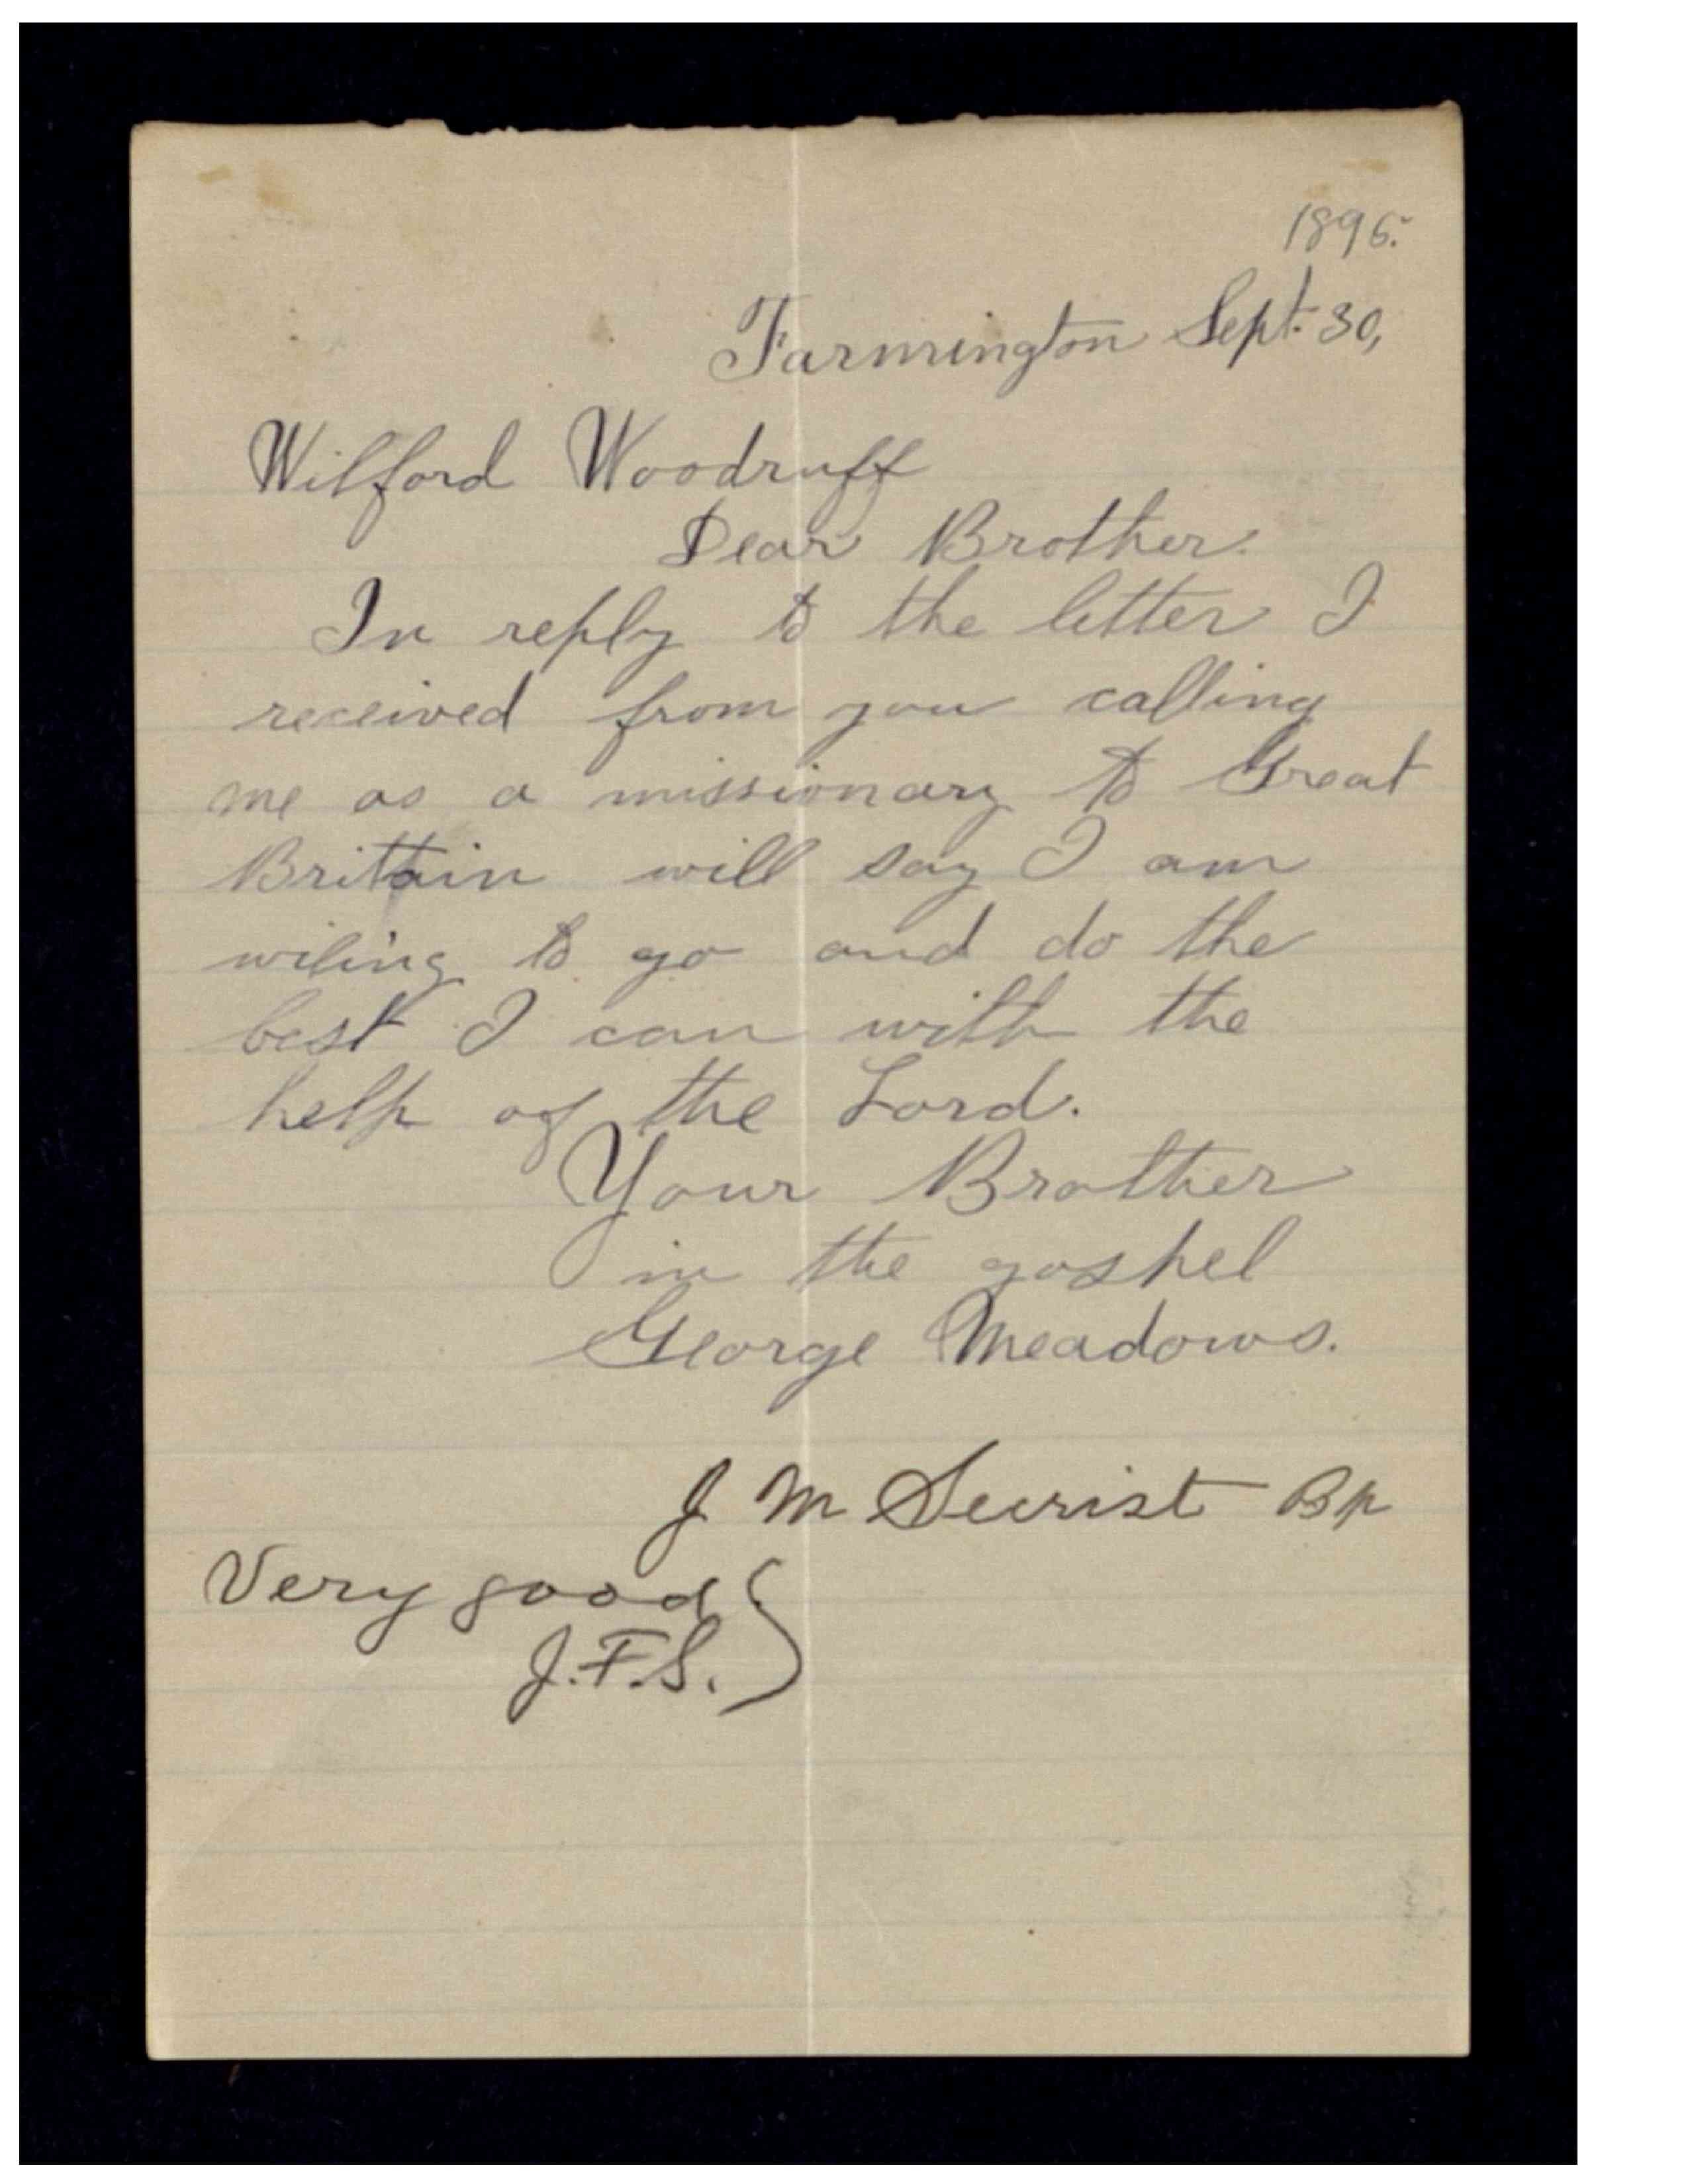 1896.
Farmington Sept. 30,
Wilford Woodruff
Dear Brother.
In reply to the letter I
received from you calling
me as a missionary to Great
Brittain will say I am
wiling to go and do the
best I can with the
help of the Lord.
Your Brother
in the gospel
George Meadows.
J M Secrist Bp
Very good
J.F.S.